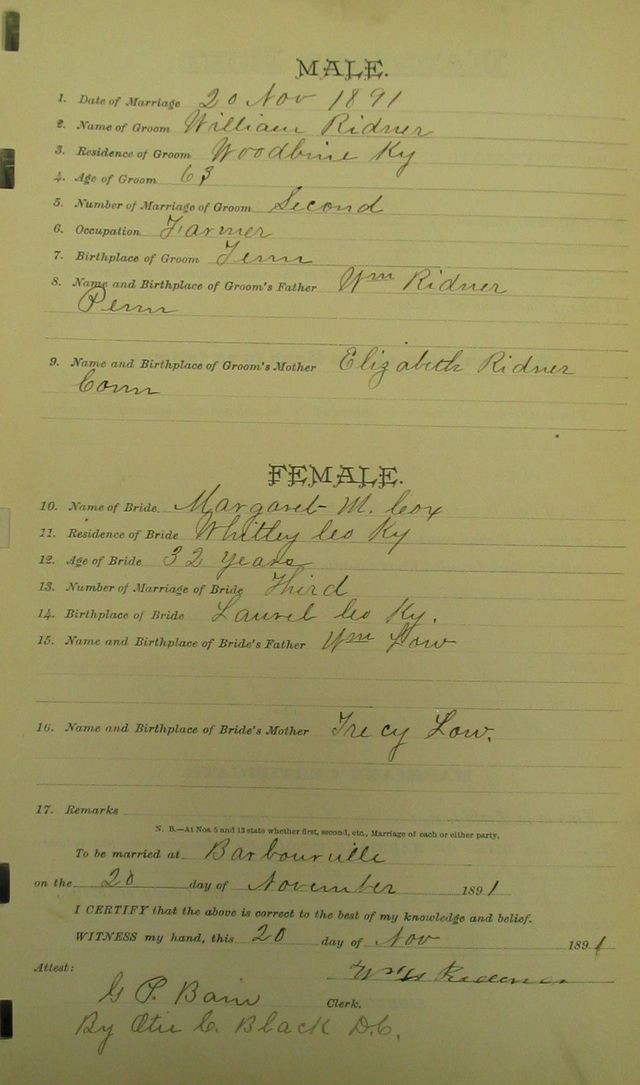 MALE.
1. Date of Marriage 20 Nov 1891
2. Name of Groom William Ridner
3. Residence of Groom Woodbine Ky
4. Age of Groom 63
5. Number of Marriage of Groom Second
6. Occupation Farmer
7. Birthplace of Groom Tenn
8. Name and Birthplace of Groom's Father Wm Ridner
Penn
9. Name and Birthplace of Groom's Mother Elizabeth Ridner
Conn
FEMALE.
10. Name of Bride. Margaret M. Cox
11. Residence of Bride Whitley Co Ky
12. Age of Bride 32 years
13. Number of Marriage of Bride Third
14. Birthplace of Bride Laurel Co Ky.
15. Name and Birthplace of Bride's Father Wm Low
16. Name and Birthplace of Bride's Mother Trecy Low.
17. Remarks
N. B.—At Nos. 5 and 13 state whether first, second, etc., Marriage of each or either party.
To be married at Barbourville
on the 20 day of November 1891
I CERTIFY that the above is correct to the best of my knowledge and belief.
WITNESS my hand, this 20 day of Nov 1891
Attest:
G P. Bain Clerk.
By C. Black D.C.